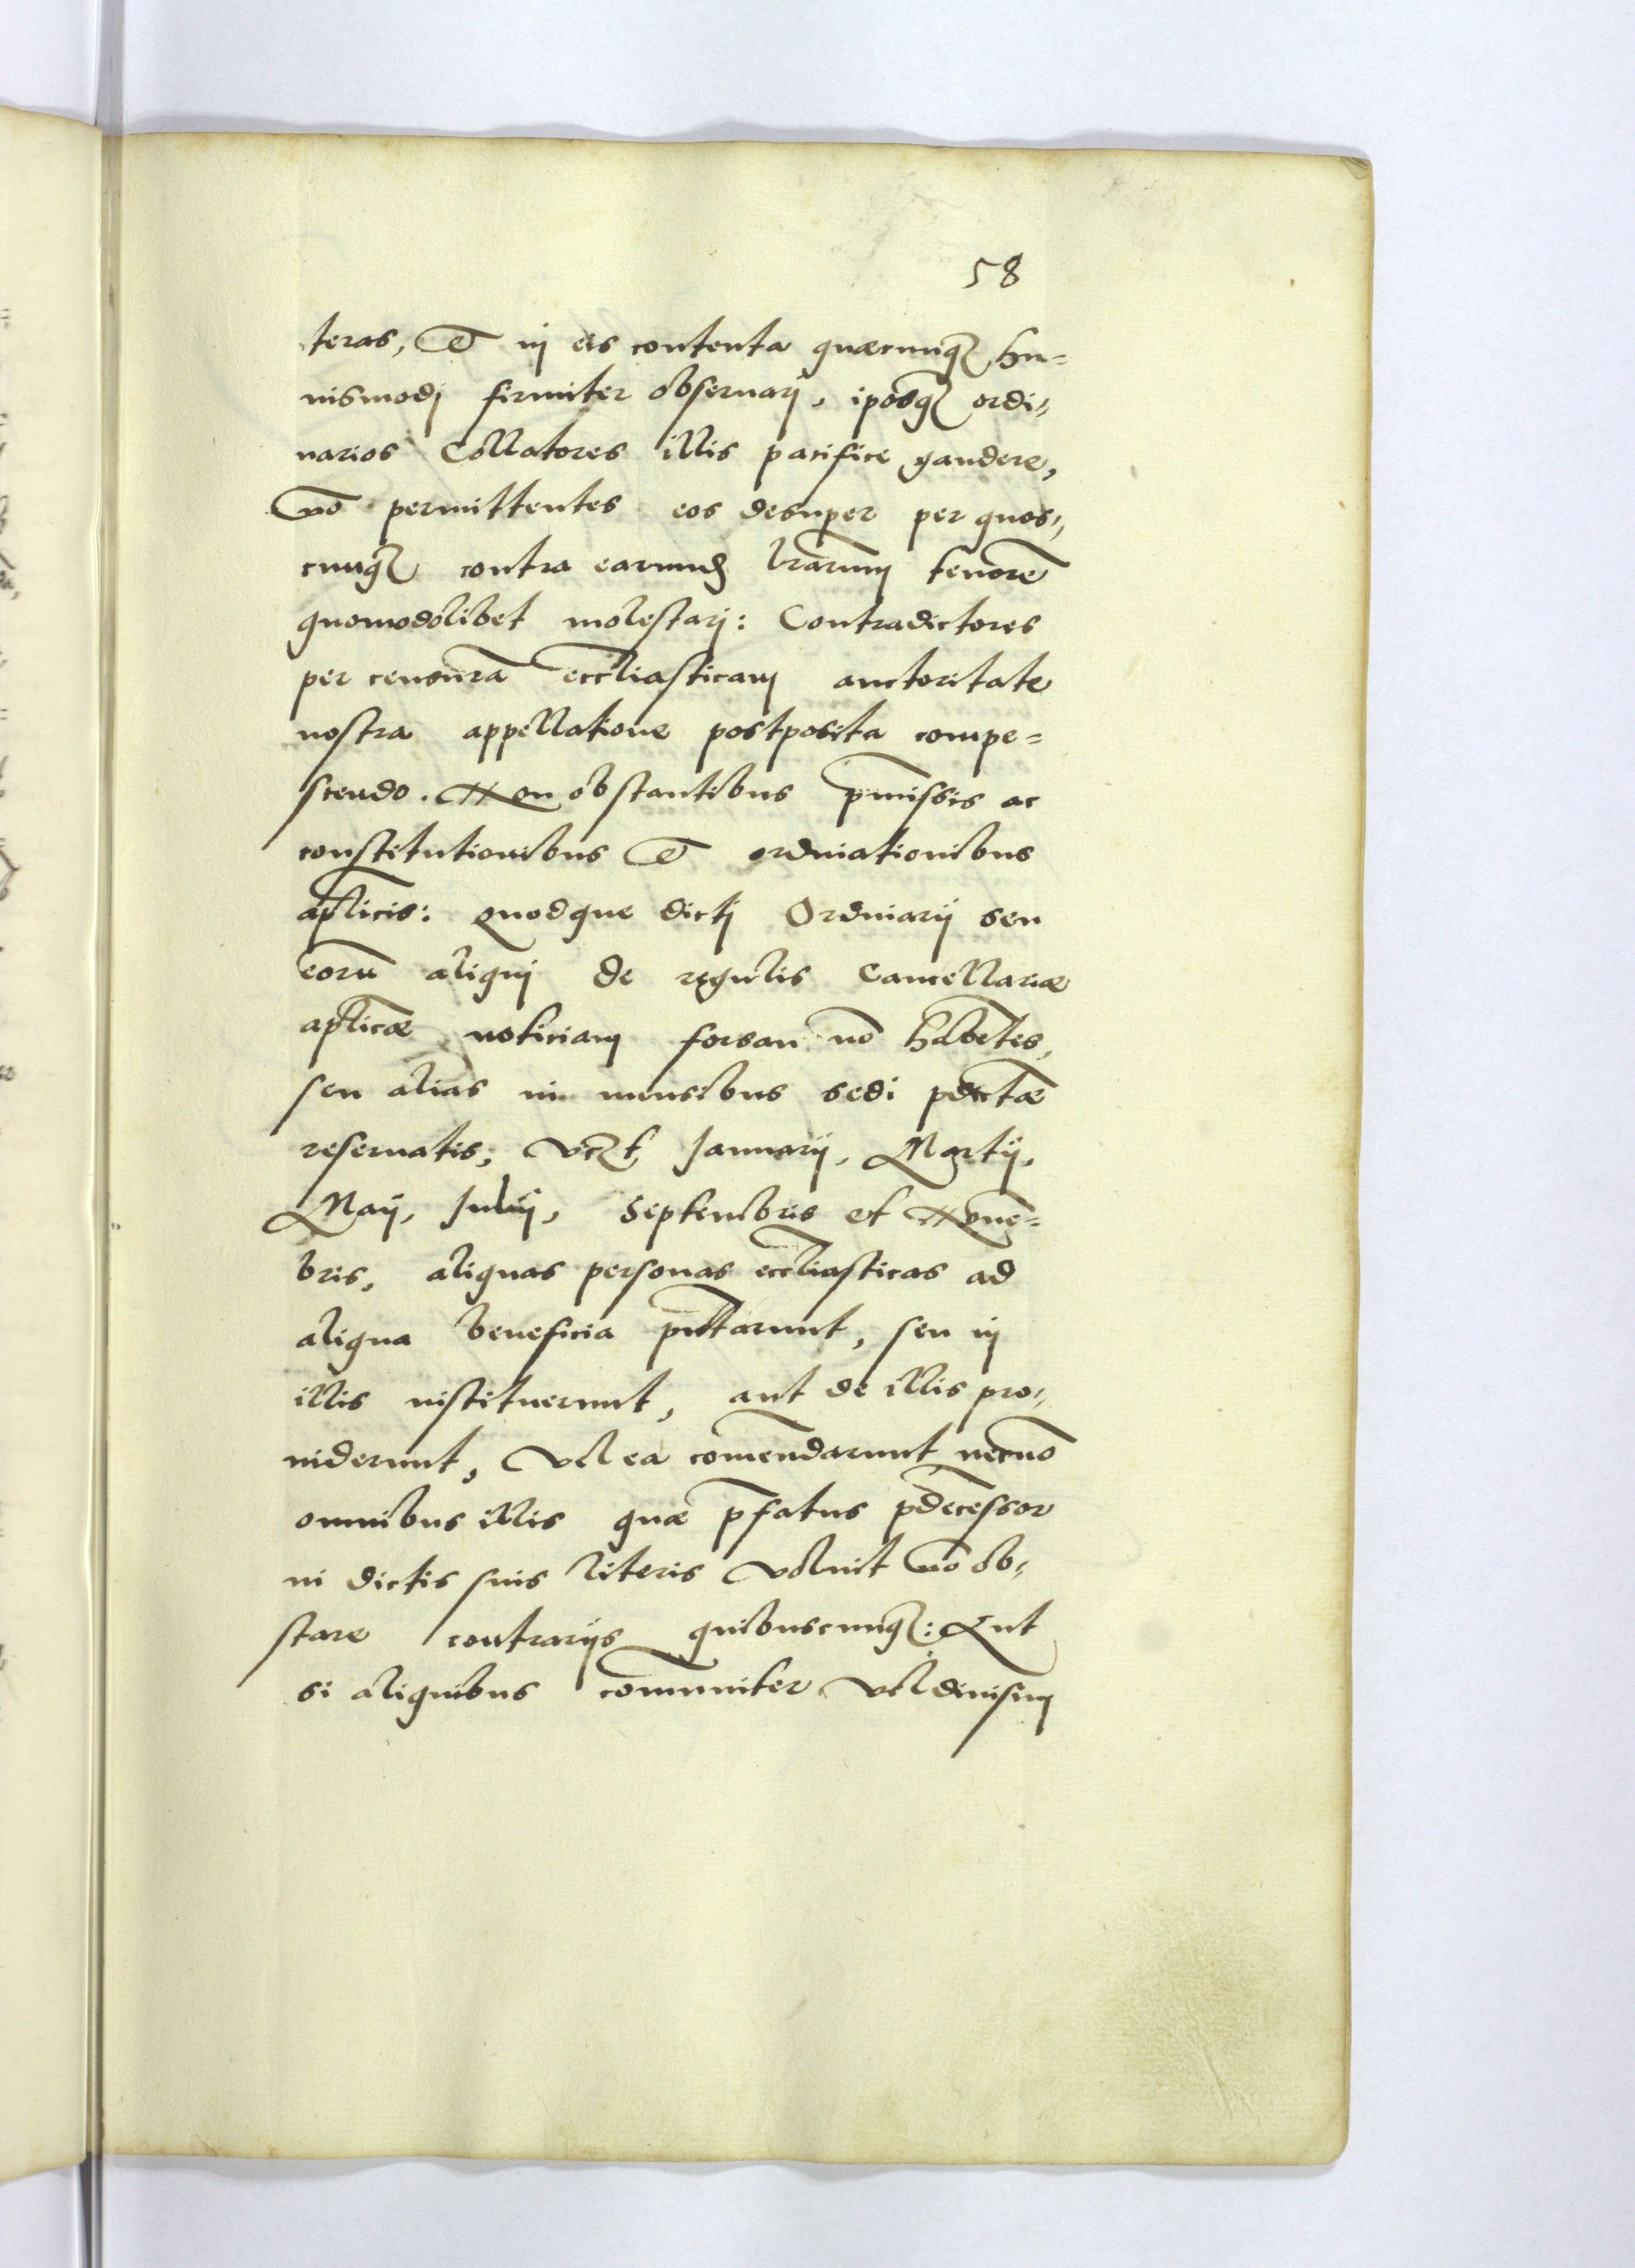 58
teras, Et in eis contenta quæcunqꝫ hu=
iusmodj firmiter obseruarj, ip̄osqꝫ ordi=
narios Collatores illis pacifice gaudere,
nō permittentes eos desuper per quos=
cunqꝫ contra earundꝫ lr̄arum tenorē
quomodolibet molestarj: Contradictores
per censurā eccl̄iasticam auctoritate
nostra appellatione postposita compe=
scendo. Non obstantibus p̄missis ac
constitutionibus Et ordinationibus
ap̄licis: quodque dictj Ordinarij seu
eorū aliquj de regulis Cancellariæ
ap̄licæ noticiam forsan nō hab̄etes,
seu alias in mensibus sedi p̄dictæ
reseruatis, vcꝫt Januarij, Martij,
Maij, Julij, Septembris et Nouē=
bris, aliquas personas eccl̄iasticas ad
aliqua beneficia p̄ntarunt, seu in
illis instituerunt, aut de illis pro=
uiderunt, vel ea com̄endarunt necnō
omnibus illis quæ p̄fatus p̄decessor
in dictis suis literis voluit nō ob=
stare contrarijs quibuscunqꝫ: Aut
si aliquibus com̄uniter vel diuisim